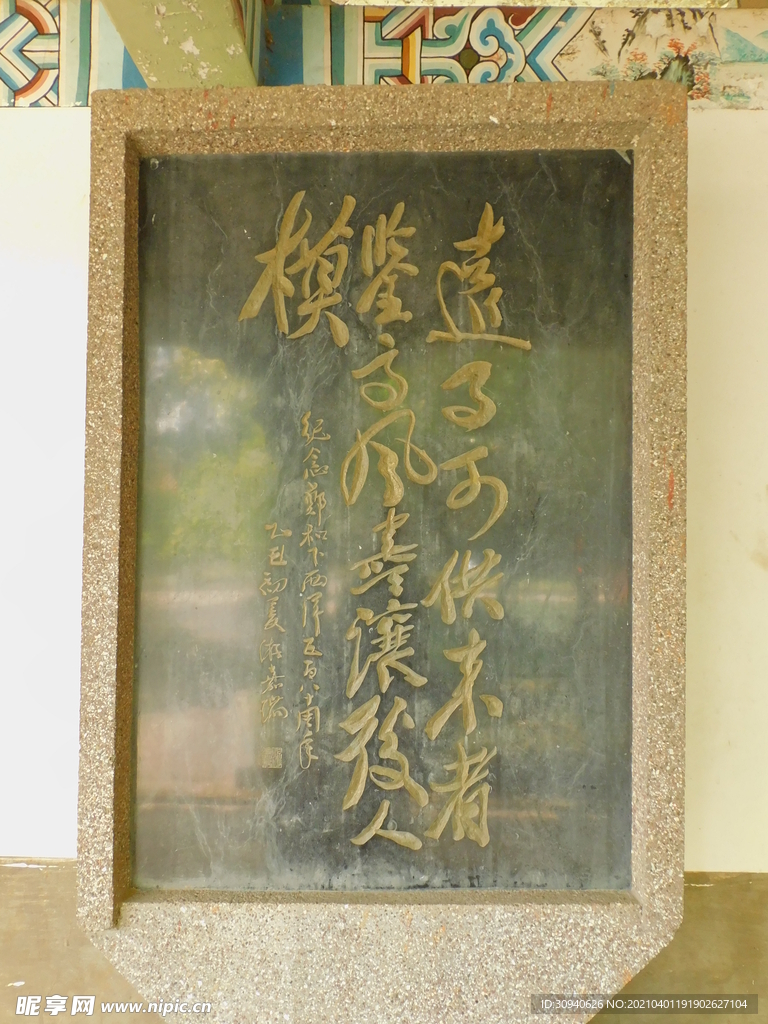 遠事可供来者
鑒高风盡讓後人
模
纪念鄭和下西洋五百八十周年
乙丑初夏嘉瑞
昵享网 www.nipic.cn
ID:30940626 NO:20210401191902627104